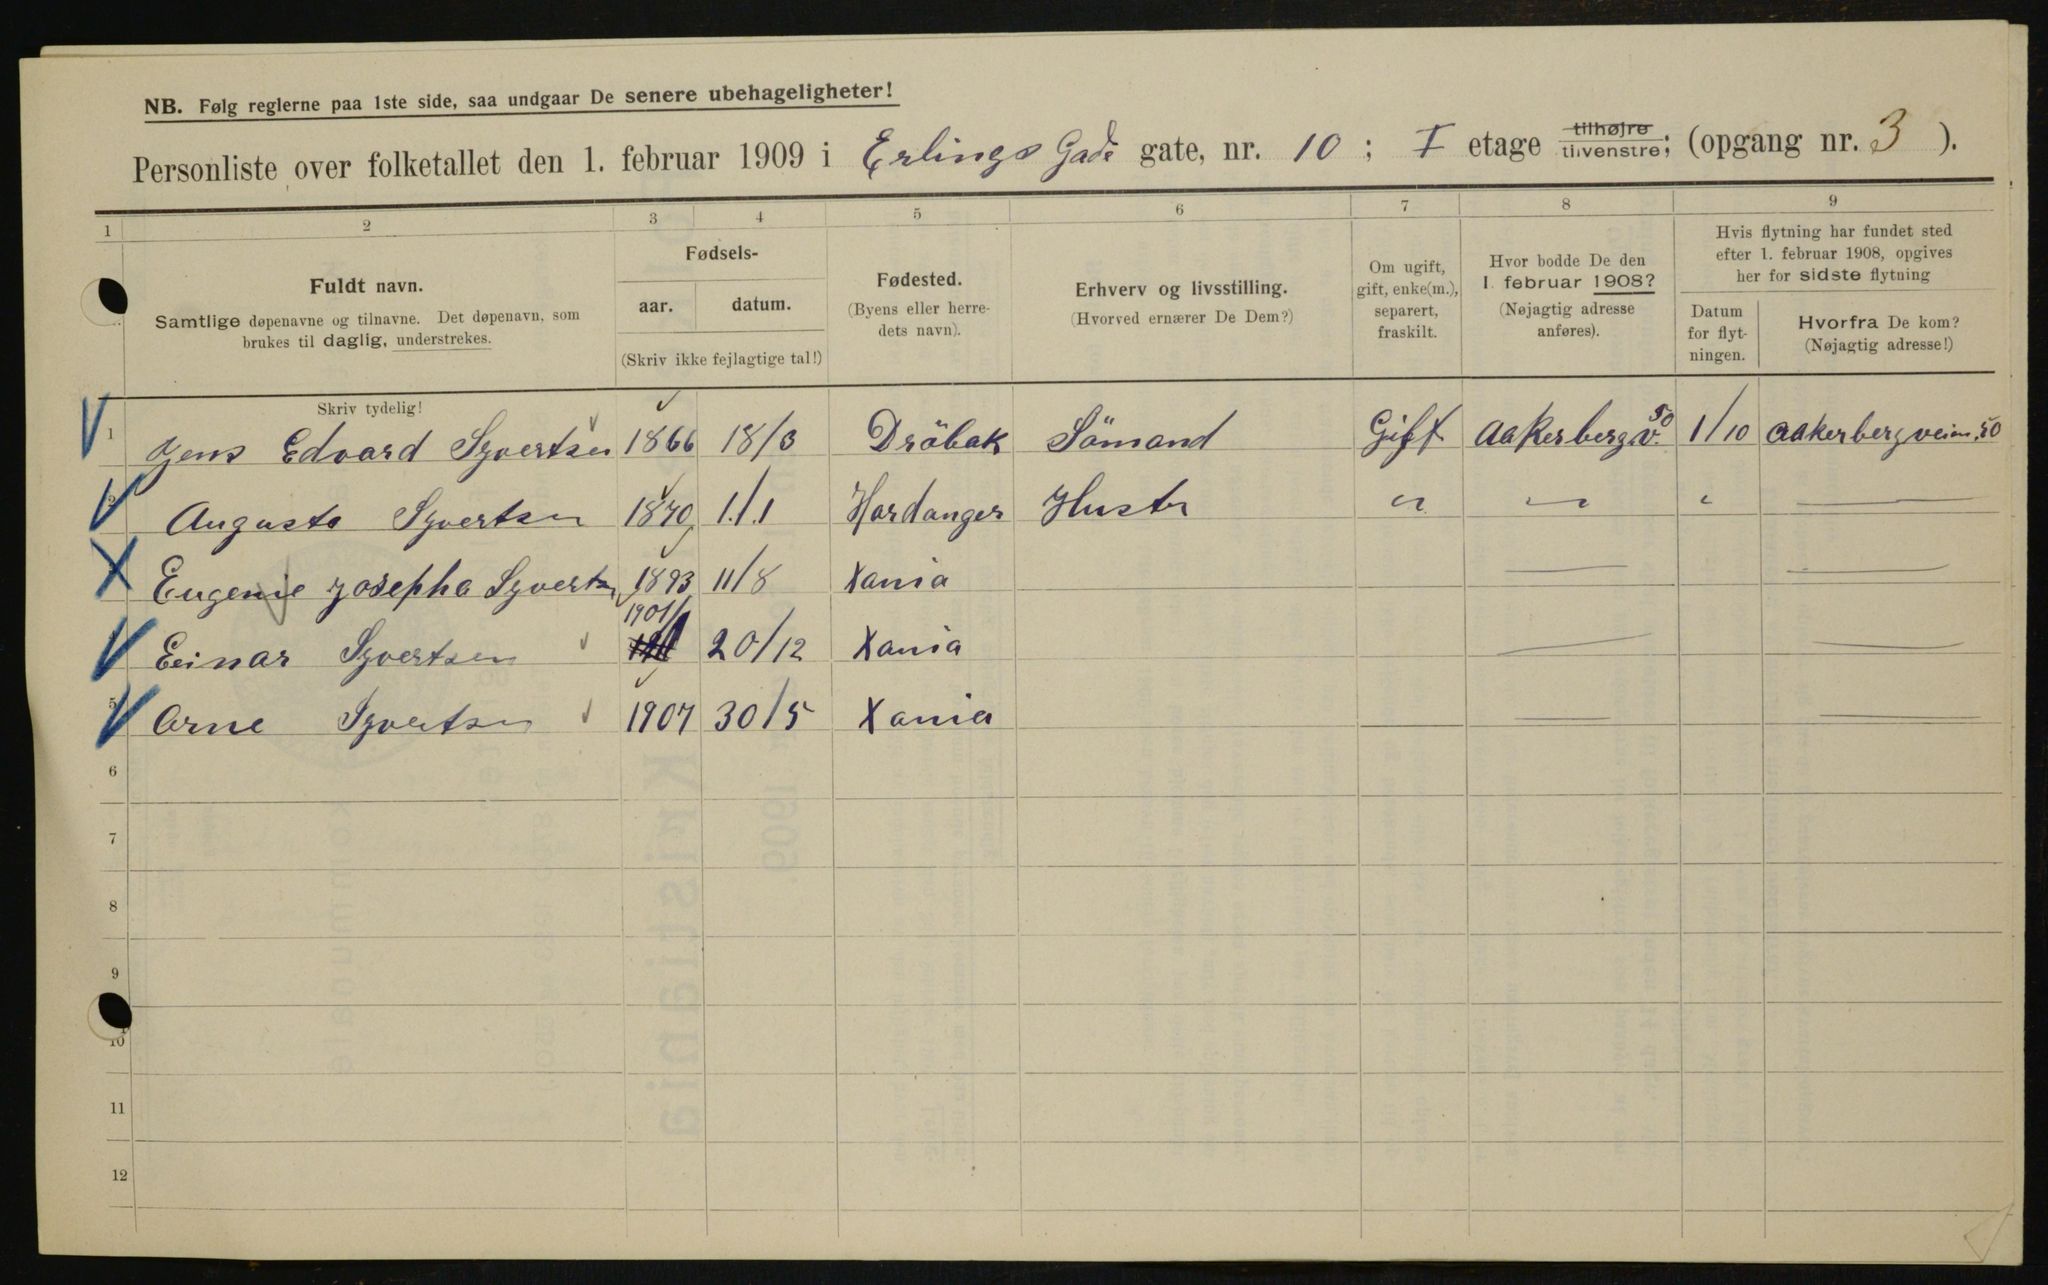 NB. Følg reglerne paa 1ste side, saa undgaar De senere ubehageligheter!
Personliste over folketallet den 1. februar 1909 i Erlings Gade gate, nr. 10; I etage tilhøjre tilvenstre; (opgang nr. 3).
1 2 3 4 5 6 7 8 9
Fuldt navn.
Samtlige døpenavne og tilnavne. Det døpenavn, som
brukes til daglig, understrekes.
Skriv tydelig!
Fødsels-
aar. datum.
(Skriv ikke fejlagtige tal!)
Fødested.
(Byens eller herre-
dets navn).
Erhverv og livsstilling.
(Hvorved ernærer De Dem?)
Om ugift,
gift, enke(m.),
separert,
fraskilt.
Hvor bodde De den
1. februar 1908?
(Nøjagtig adresse
anføres).
Hvis flytning har fundet sted
efter 1. februar 1908, opgives
her for sidste flytning
Datum
for flyt-
ningen.
Hvorfra De kom?
(Nøjagtig adresse!)
1 Jens Edvard Syvertsen 1866 18/3 Dröbak Sömand Gift Aakerbergv. 50 1/10 Aakerbergveien 50
2 Augusta Syvertsen 1870 1./.1 Hardanger Hustr " " "
Eugenie Josepha Syvertsen 1893 11/8 Xania
Eeinar Syvertsen 1901 20/12 Xania
5 Arne Syvertsen 1907 30/5 Xania
6
7
8
9
10
11
12